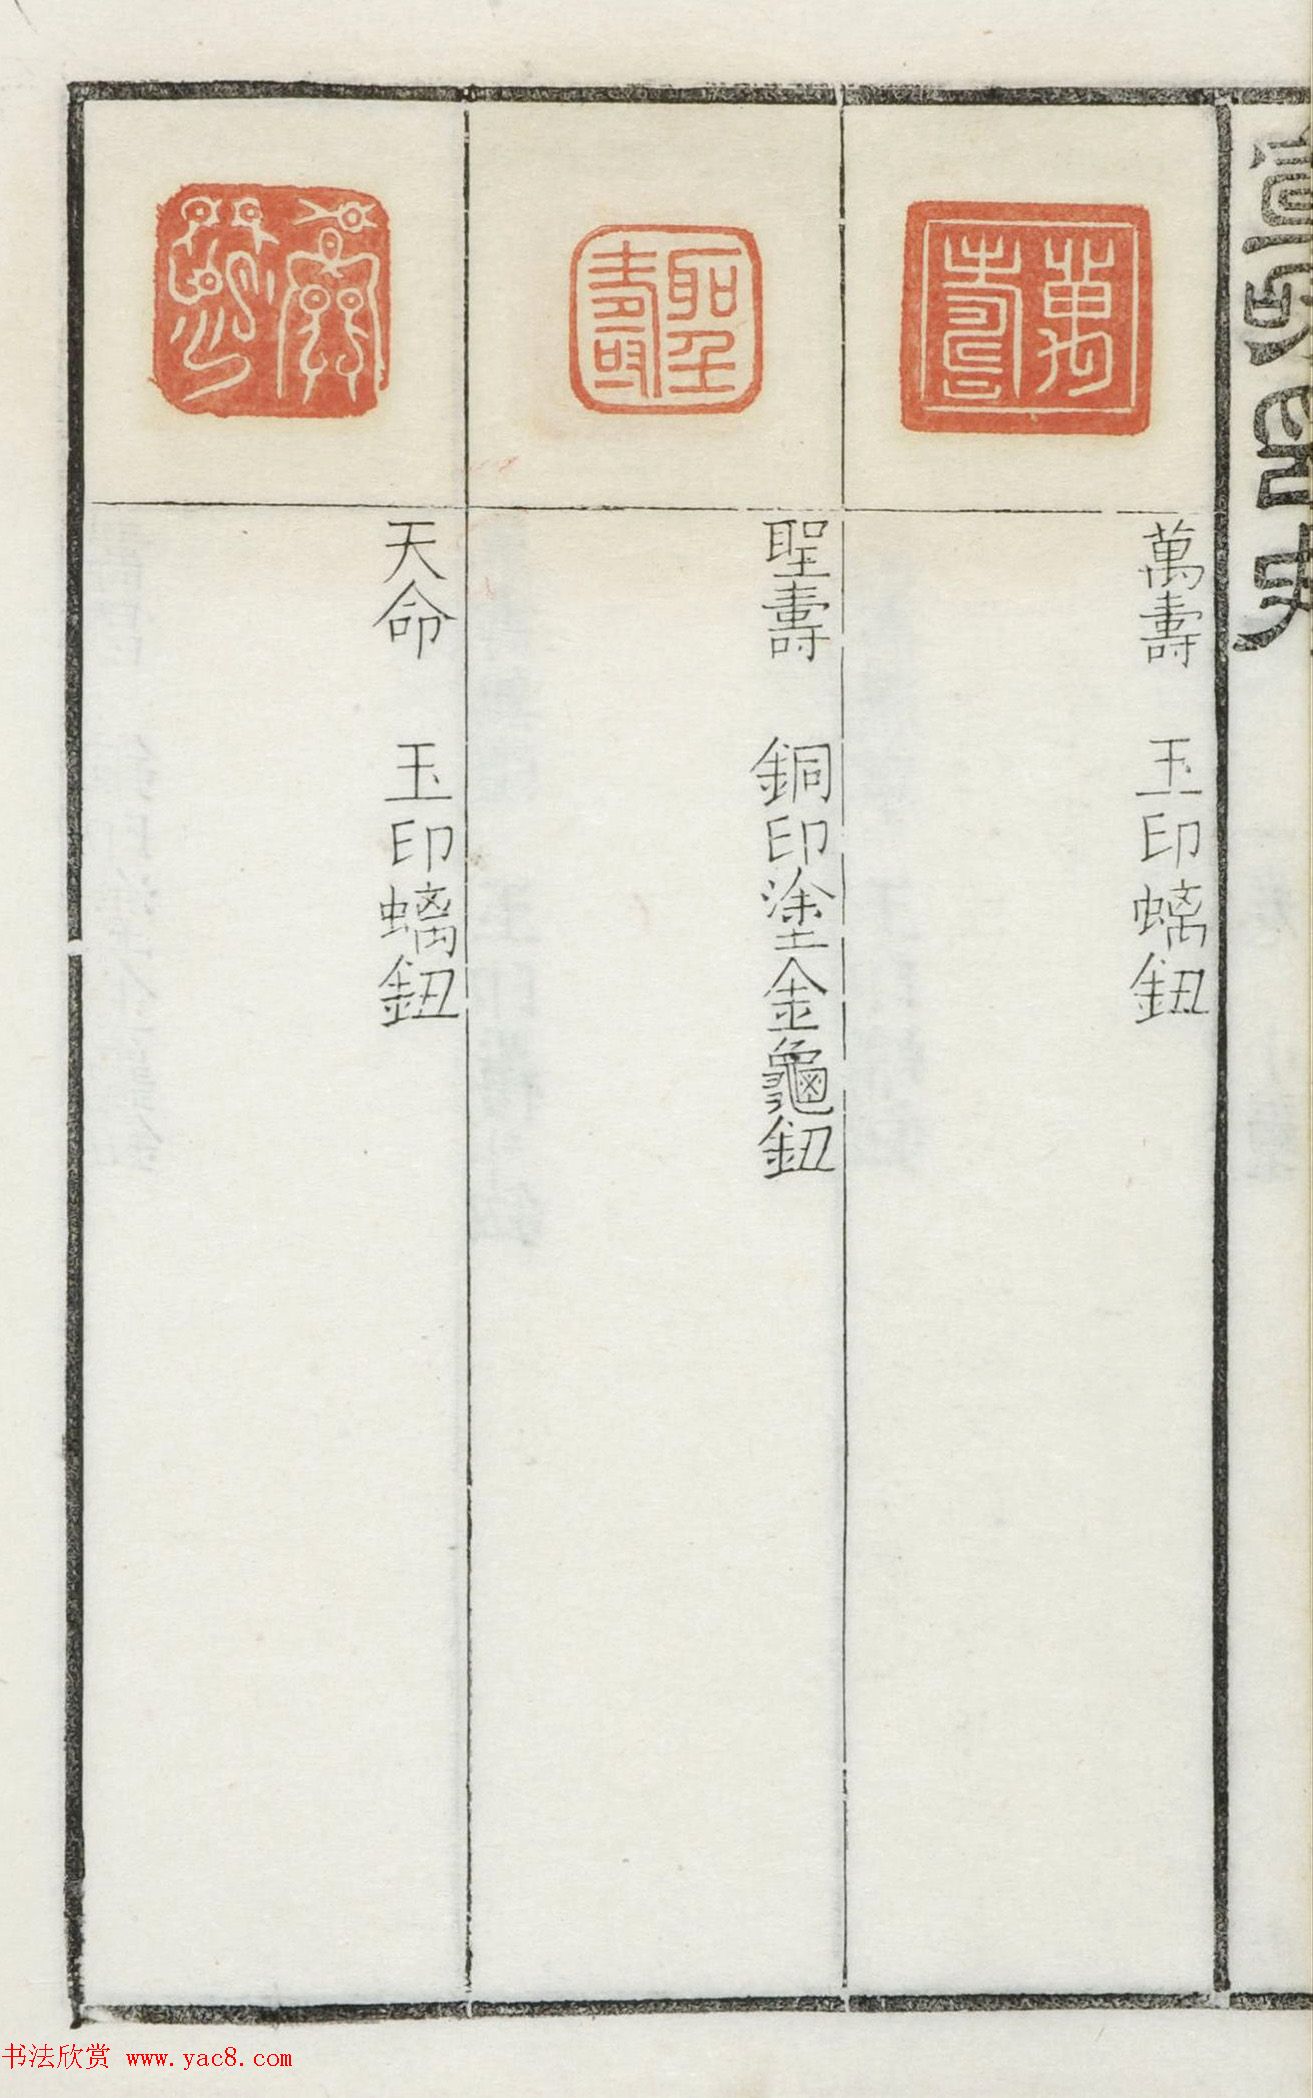 萬壽
萬壽 玉印螭鈕
聖壽
聖壽 銅印塗金龜鈕
天命 玉印螭鈕
书法欣赏 www.yac8.com